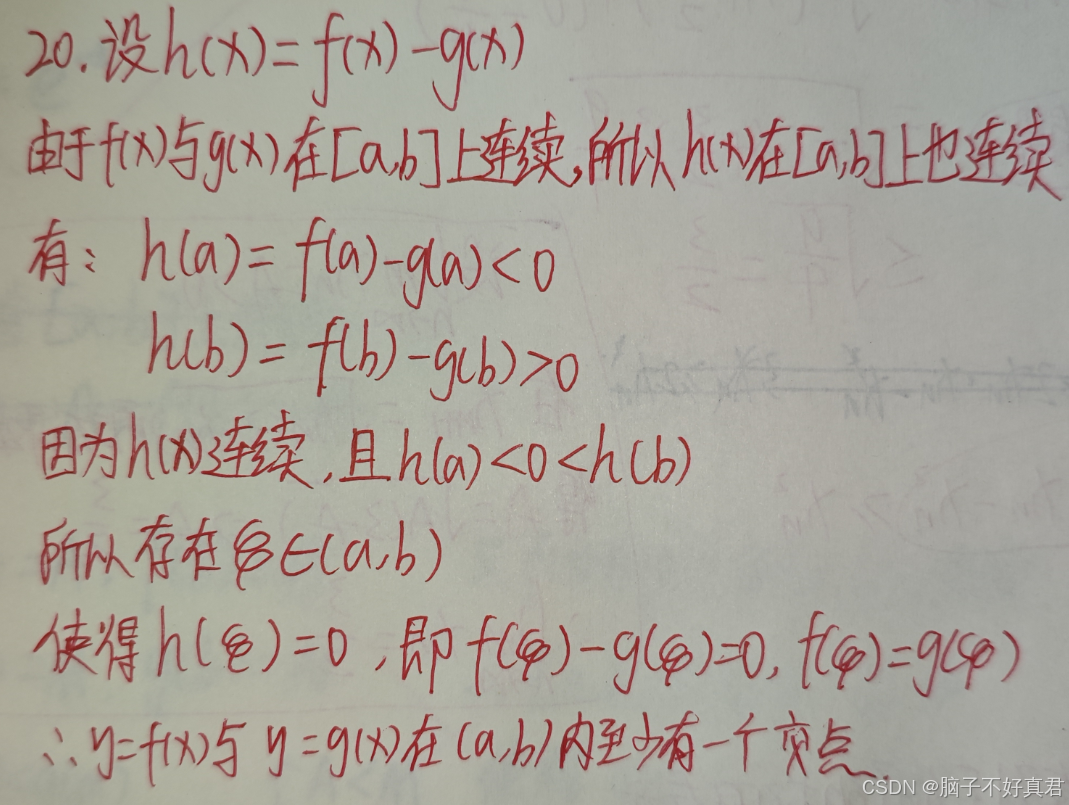 20.设h(x)=f(x)-g(x)
由于f(x)与g(x)在[a,b]上连续,所以h(x)在[a,b]上也连续
有: h(a)=f(a)-g(a)<0
h(b)=f(b)-g(b)>0
因为h(x)连续,且h(a)<0<h(b)
所以存在ξ∈(a,b)
使得h(ξ)=0,即f(ξ)-g(ξ)=0,f(ξ)=g(ξ)
∴y=f(x)与y=g(x)在(a,b)内至少有一个交点.
CSDN @脑子不好真君